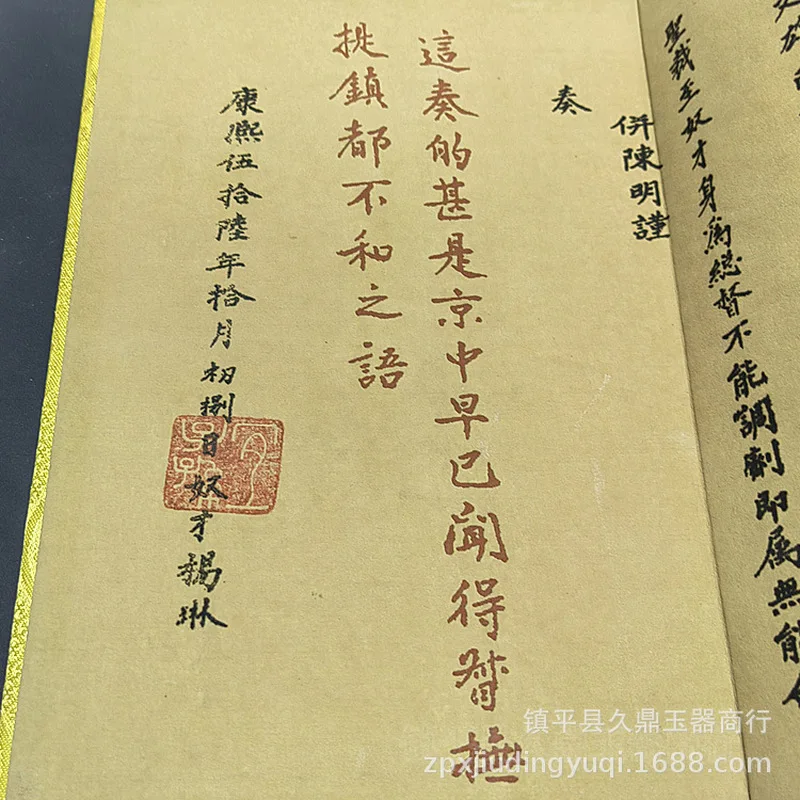 聖裁至奴才身為總督不能調劑即属無能
併陳明謹
奏
這奏的甚是京中早已聞得督撫
提鎮都不和之語
康熙伍拾陸年拾月初捌日奴才楊琳
镇平县久鼎玉器商行
zpxjiudingyuqi.1688.com